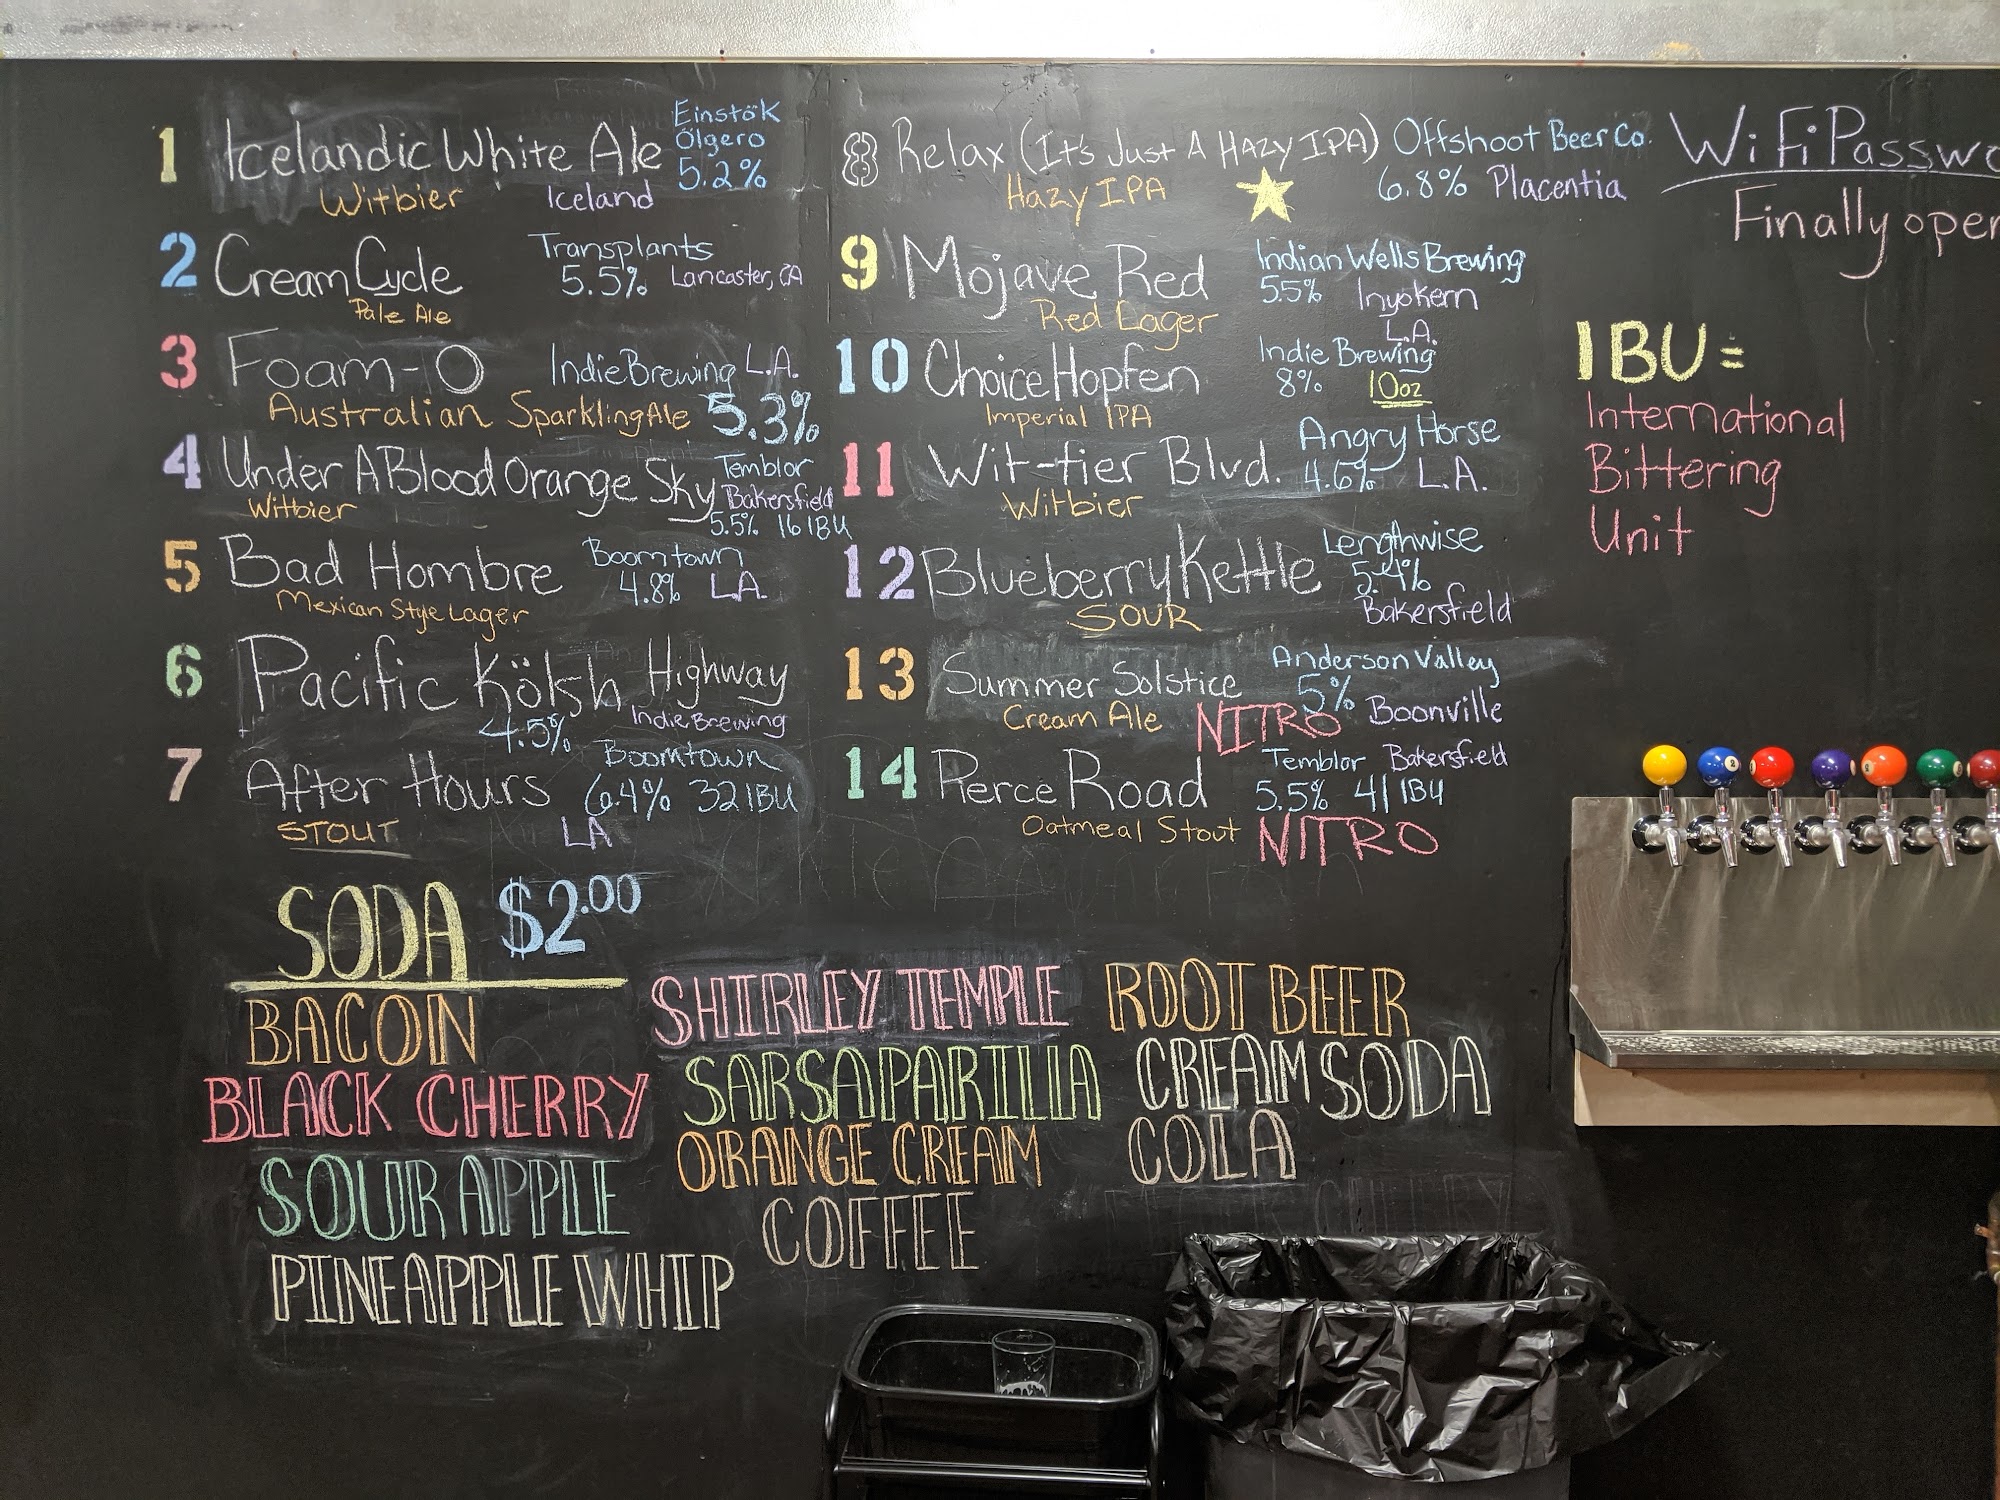 1 Icelandic White Ale Einstök Ölgero 5.2%
Witbier Iceland
2 Cream Cycle Transplants 5.5% Lancaster, CA
Pale Ale
3 Foam-O Indie Brewing L.A.
Australian Sparkling Ale 5.3%
4 Under A Blood Orange Sky Temblor Bakersfield
Witbier 5.5% 16 IBU
5 Bad Hombre Boomtown 4.8% L.A.
Mexican Style Lager
6 Pacific Kölsh Highway
4.5% Indie Brewing
7 After Hours Boomtown 6.4% 32 IBU
STOUT LA
8 Relax (It's Just A Hazy IPA) Offshoot Beer Co.
Hazy IPA 6.8% Placentia
9 Mojave Red Indian Wells Brewing 5.5% Inyokern
Red Lager
10 Choice Hopfen L.A. Indie Brewing 8% 10oz
Imperial IPA
11 Wit-tier Blvd. Angry Horse 4.6% L.A.
Witbier
12 Blueberry Kettle Lengthwise 5.4%
SOUR Bakersfield
13 Summer Solstice Anderson Valley 5%
Cream Ale NITRO Boonville
14 Pierce Road Temblor Bakersfield 5.5% 41 IBU
Oatmeal Stout NITRO
WiFi Passwo
Finally open
IBU =
International
Bittering
Unit
SODA $2.00
BACON
BLACK CHERRY
SOUR APPLE
PINEAPPLE WHIP
SHIRLEY TEMPLE
SARSAPARILLA
ORANGE CREAM
COFFEE
ROOT BEER
CREAM SODA
COLA